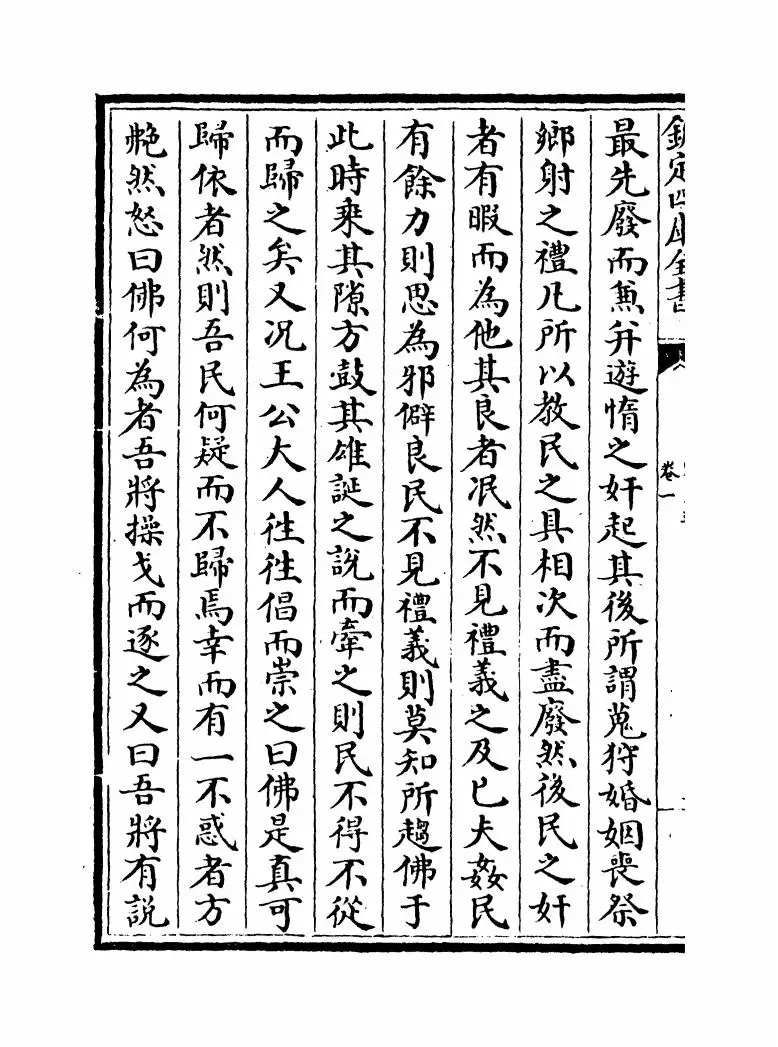 欽定四庫全書
卷一
最先廢而兼并遊惰之奸起其後所謂蒐狩婚姻喪祭
鄉射之禮凡所以教民之具相次而盡廢然後民之奸
者有暇而為他其良者泯然不見禮義之及已夫姦民
有餘力則思為邪僻良民不見禮義則莫知所趨佛于
此時乗其隙方鼓其雄誕之說而牽之則民不得不從
而歸之矣又况王公大人徃徃倡而崇之曰佛是真可
歸依者然則吾民何疑而不歸焉幸而有一不惑者方
艴然怒曰佛何為者吾將操戈而逐之又曰吾將有説